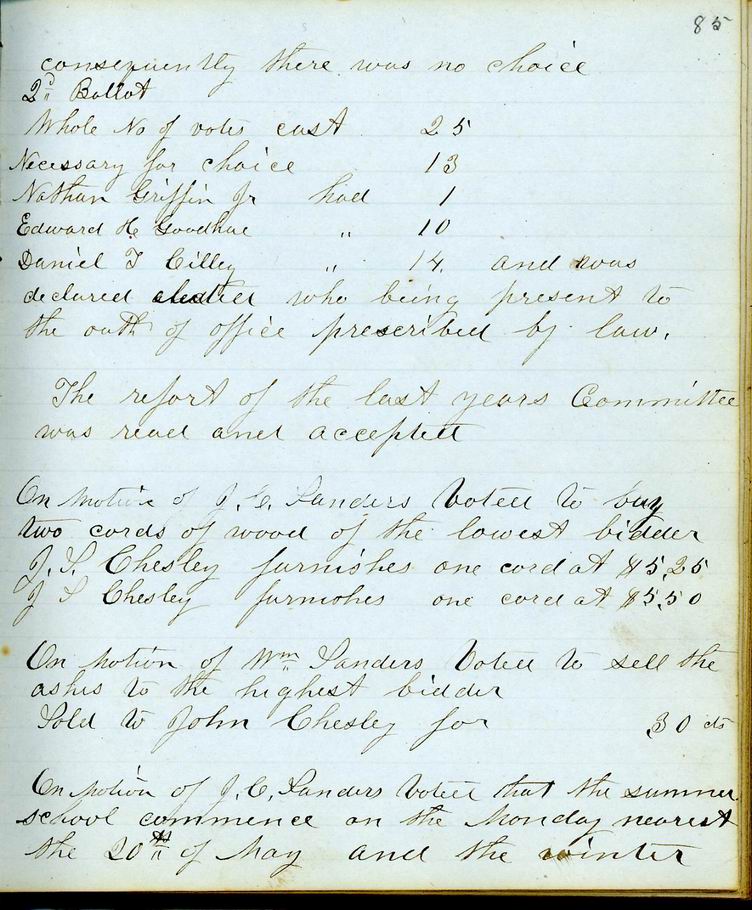 85
consequently there was no choice
2d Ballot
Whole No of votes cast 25
Necessary for choice 13
Nathan Griffin Jr had 1
Edward H Goodhue " 10
Daniel T Cilley " 14. and was
declared elected who being present to
the outh of office prescribed by law.
The report of the last years Committee
was read and accepted
On motion of J. C. Sanders Voted to buy
two cords of wood of the lowest bidder
J. S. Chesley furnishes one cord at $5.25
J S Chesley furnishes one cord at $5.50
On Motion of Wm Sanders Voted to sell the
ashes to the highest bidder
Sold to John Chesley for 30 cts
On Motion of J. C. Sanders Voted that the summer
school commence on the Monday nearest
the 20th of May and the winter